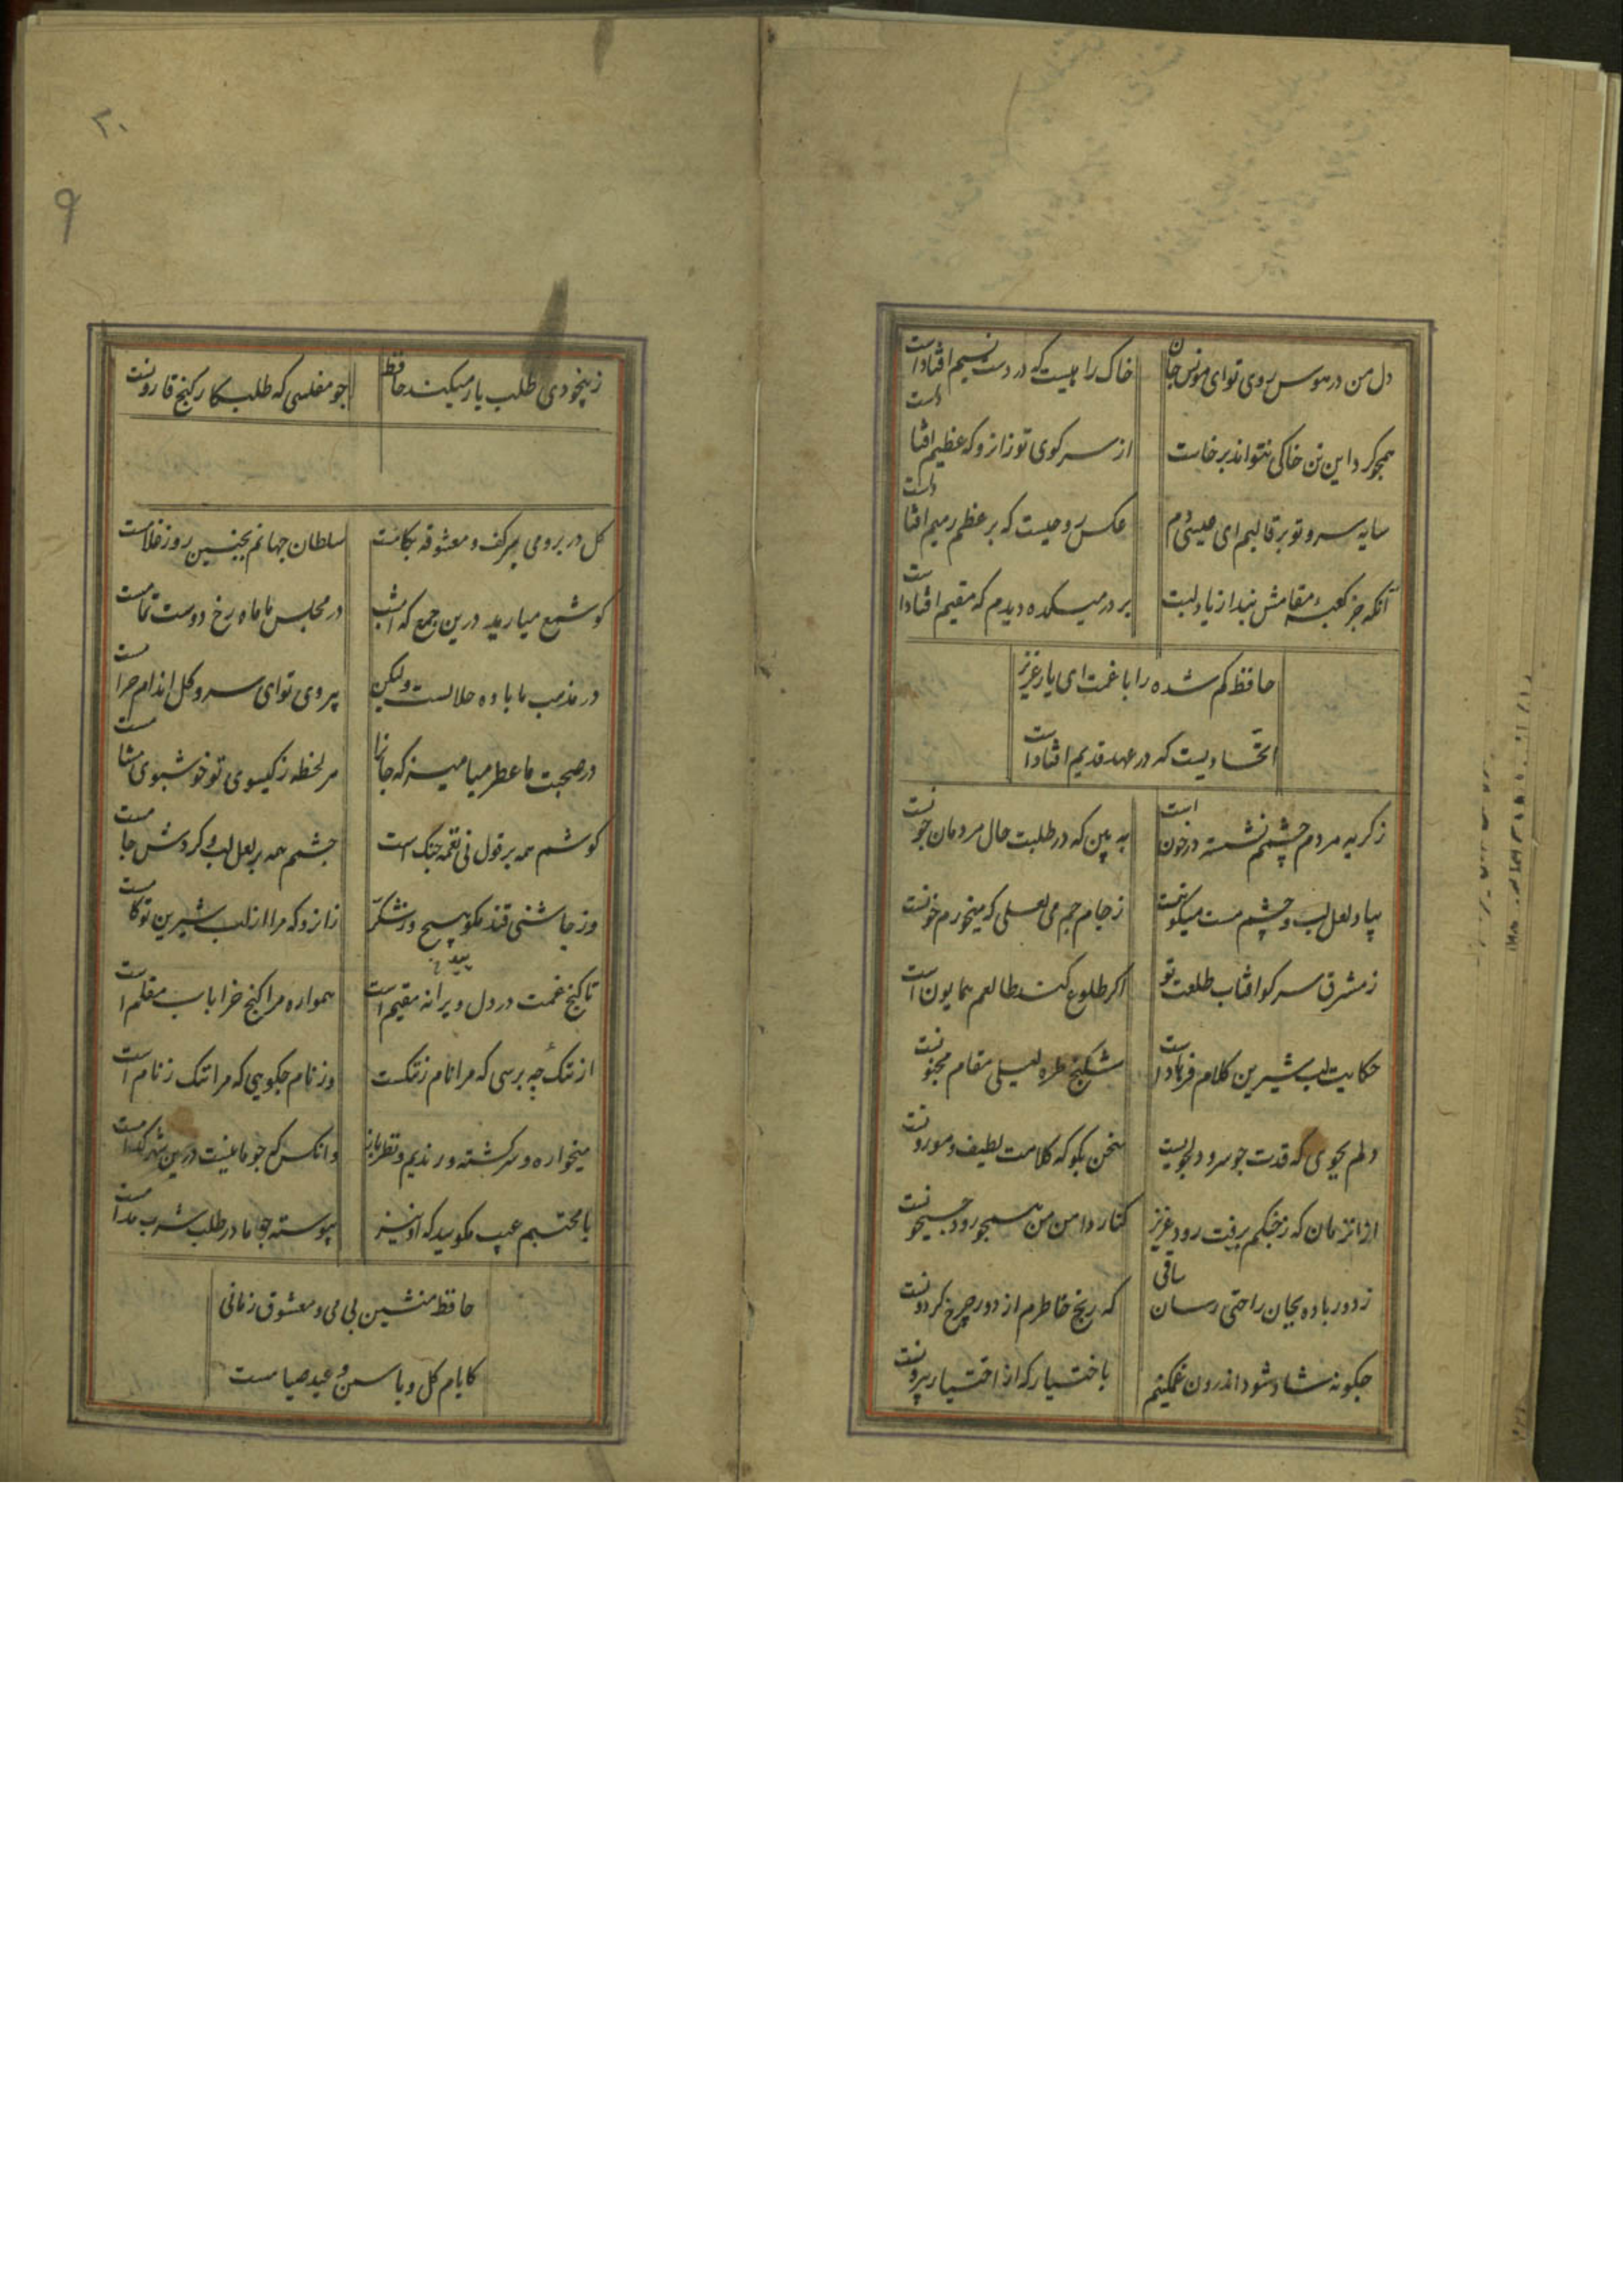 دل من در هوس روی تو ای مونس جان
خاک راهیست که در دست نسیم افتادست
همچو کرد این تن خاکی نتواند برخاست
از سر کوی تو زانرو که عظیم افتادست
سایه سرو تو بر قالبم ای عیسی دم
عکس روحیست که بر عظم رمیم افتادست
آنکه جز کعبه مقامش نبد از یاد لبت
بر در میکده دیدم که مقیم افتادست
حافظ کم شده را با غمت ای یار عزیز
اتحادیست که در عهد قدیم افتادست
ز کریه مردم چشمم نشسته در خون است
به بین که در طلبت حال مردمان چونست
بیاد لعل لب و چشم مست میکونت
ز جام جم می لعلی که میخورم خونست
ز مشرق سر کو افتاب طلعت تو
اکر طلوع کند طالعم همایون است
حکایت لب شیرین کلام فرهاد است
شکنج طره لیلی مقام مجنونست
دلم بجوی که قدت چو سرو دلجویست
سخن بکو که کلامت لطیف و موزونست
از انزمان که ز چنکم برفت رود عزیز
کنار دامن من همچو رود جیحونست
ز دور باده بجان راحتی رسان ساقی
که رنج خاطرم از دور چرخ کردونست
چکونه شاد شود اندرون غمکینم
باختیار که از اختیار بیرونست
۳۰
۹
ز بیخودی طلب یار میکند حافظ
چو مفلسی که طلبکار کنج قارونست
کل در بر و می بر کف و معشوقه بکامست
سلطان جهانم بچنین روز غلامست
کو شمع میارید درین جمع که امشب
در مجلس ما ماه رخ دوست تمامست
در مذهب ما باده حلالست ولیکن
بیروی تو ای سرو کل اندام حرامست
در صحبت ما عطر میامیز که جانها
هر لحظه ز کیسوی تو خوشبوی مشامست
کوشم همه بر قول نی نغمه چنک است
چشمم همه بر لعل لب و کردش جامست
وز چاشنی قند مکو هیچ و ز شکر
زانرو که مرا از لب شیرین تو کامست
تا کنج غمت در دل ویرانه مقیم است
همواره مرا کنج خرابات مقام است
از ننک چه پرسی که مرا نام ز ننکست
وز نام چکویی که مرا ننک ز نام است
میخواره و سرکشته و رندیم و نظرباز
وانکس که چو ما نیست درین شهر کدامست
با محتسبم عیب مکویید که او نیز
پیوسته چو ما در طلب شرب مدامست
حافظ منشین بی می و معشوق زمانی
کایام کل و یاسمن و عید صیامست